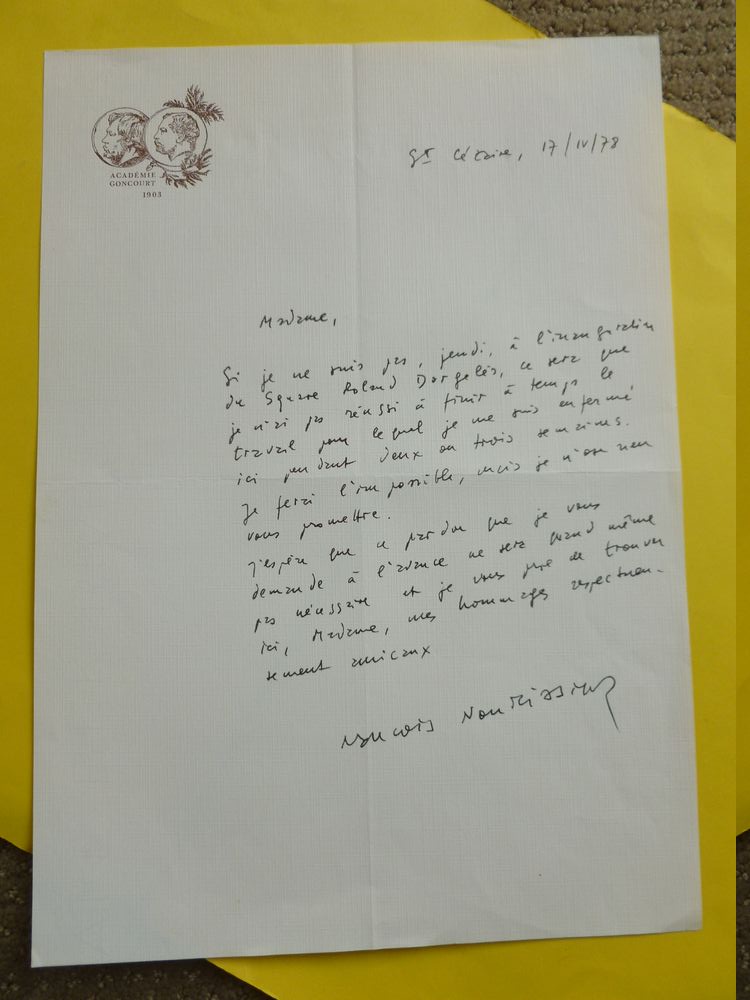 ACADÉMIE
GONCOURT
1903
St Cézaire, 17/IV/78
Madame,
Si je ne suis pas, jeudi, à l'inauguration
du Square Roland Dorgelès, ce sera que
je n'ai pas réussi à finir à temps le
travail pour lequel je me suis enfermé
ici pendant deux ou trois semaines.
Je ferai l'impossible, mais je n'ose rien
vous promettre.
J'espère que ce pardon que je vous
demande à l'avance ne sera quand même
pas nécessaire et je vous prie de trouver
ici, Madame, mes hommages respectueu-
sement amicaux
François Nourissier